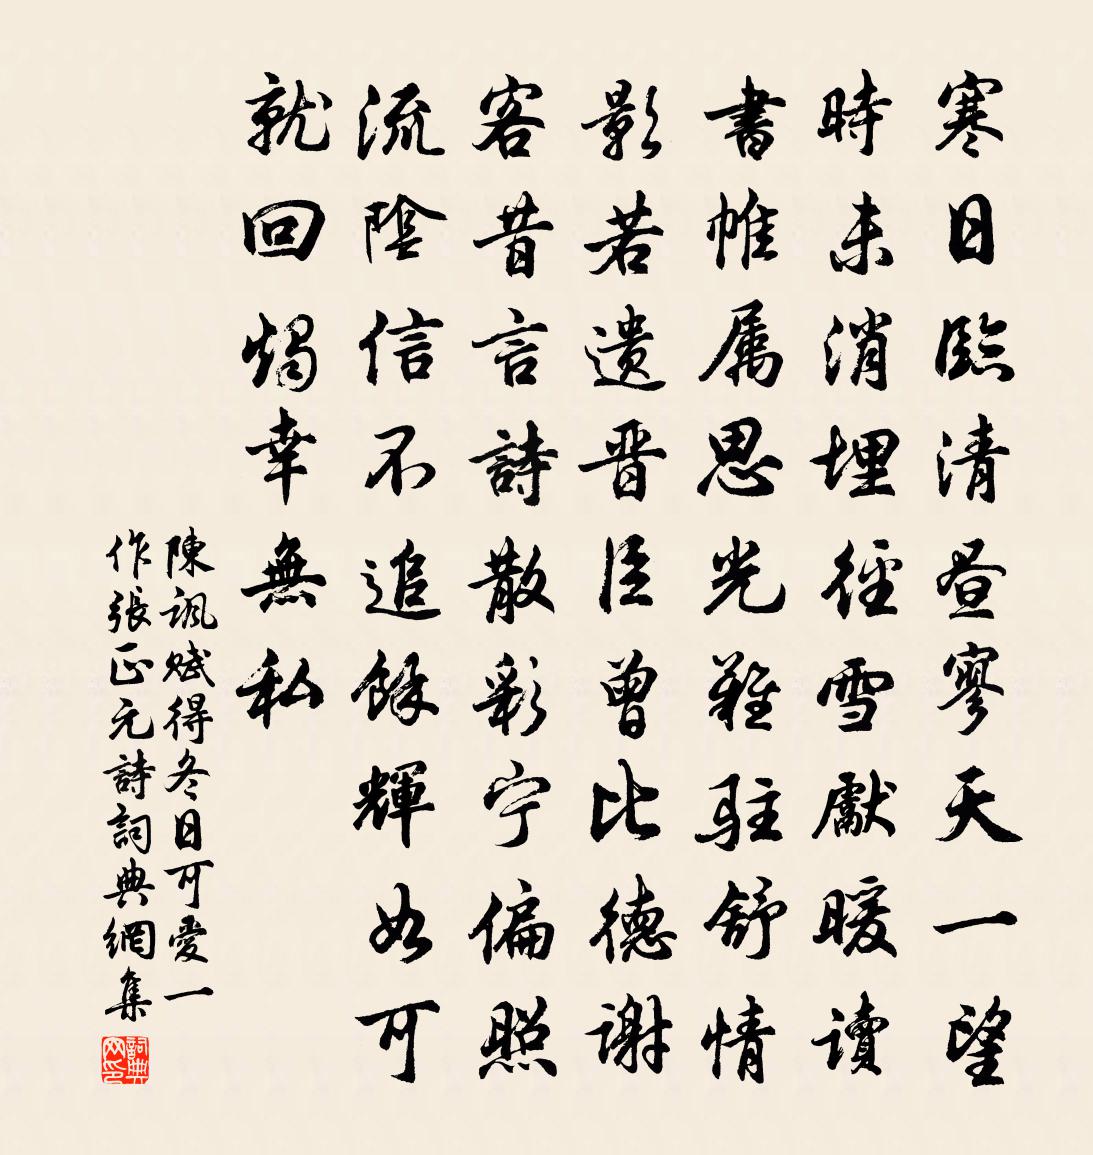 寒日臨清晝寥天一望
時未消埋徑雪獻暖讀
書帷属思光難駐舒情
影若遺晋臣曾比德謝
客昔言詩散彩宁偏照
流陰信不追餘輝如可
就回燭幸無私
陳諷賦得冬日可愛一
作張正元詩詞典網集
詞典网印